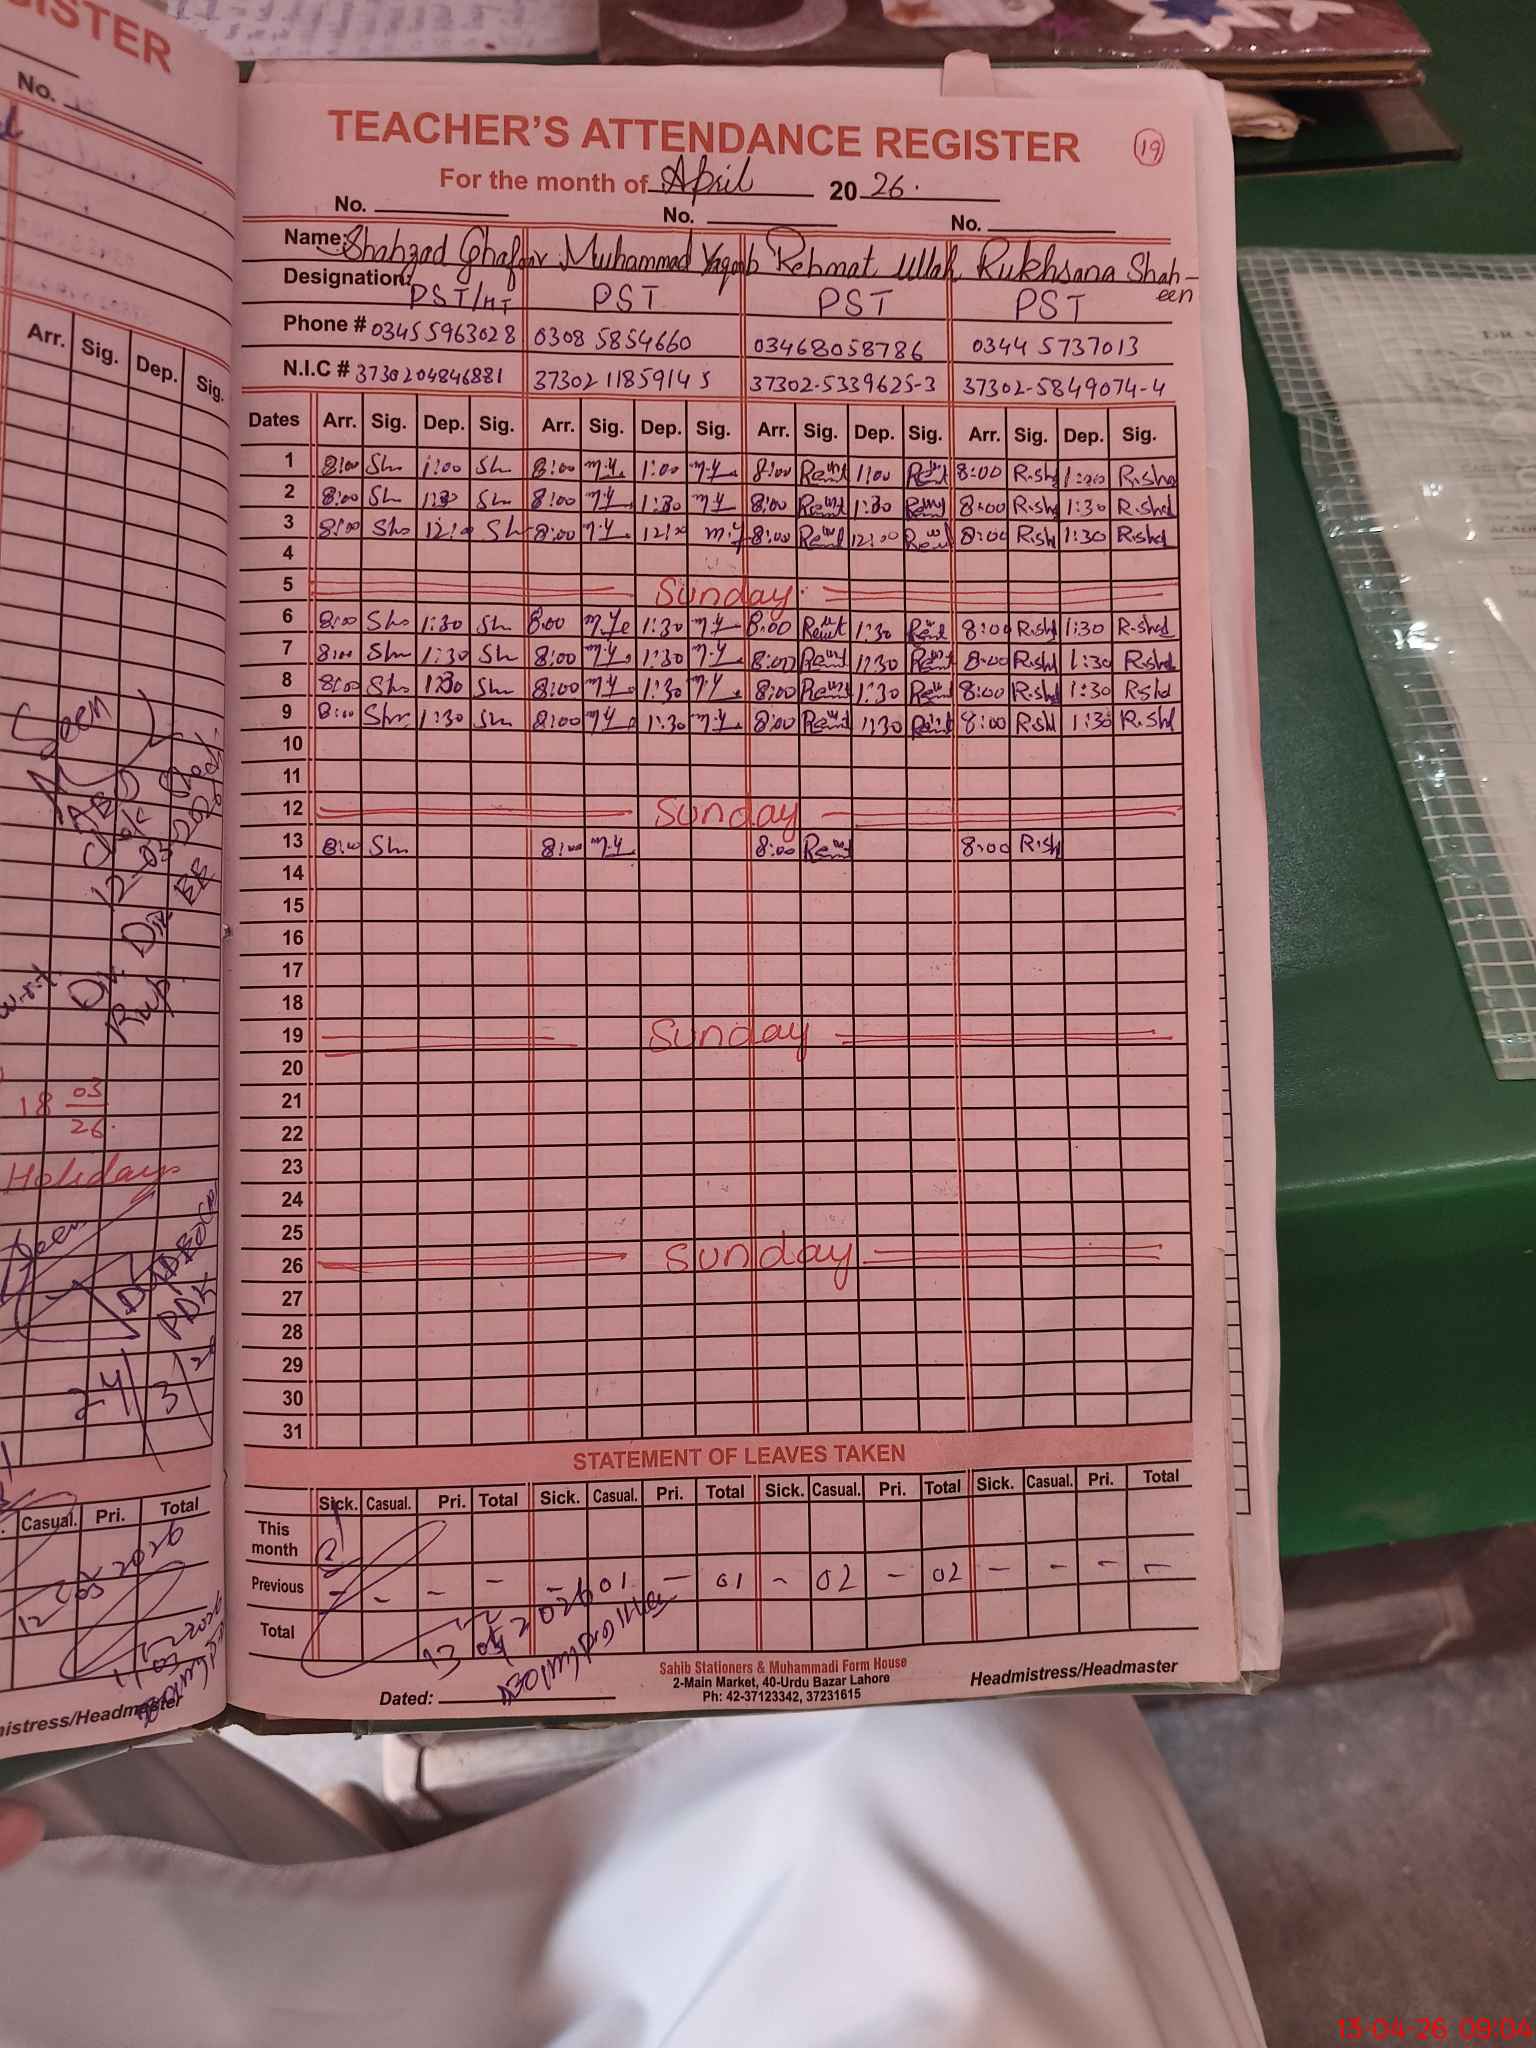 TEACHER'S ATTENDANCE REGISTER
19
For the month of April 2026.
No. No. No.
Name: Shahzad Ghafoor Muhammad Yaqoob Rehmat Ullah Rukhsana Shah-
een
Designation: PST/HT PST PST PST
Phone # 03455963028 0308 5854660 03468058786 0344 5737013
N.I.C # 3730204846881 37302 1185914 5 37302-5339625-3 37302-5849074-4
Dates Arr. Sig. Dep. Sig. Arr. Sig. Dep. Sig. Arr. Sig. Dep. Sig. Arr. Sig. Dep. Sig.
1 8:00 Sh 1:00 Sh 8:00 M.Y 1:00 M.Y 8:00 1:00 8:00 R.shd R.shd
2 8:00 Sh 1:30 Sh 8:00 M.Y 1:30 M.Y 8:00 1:30 8:00 R.shd 1:30 R.shd
3 8:00 Sh Sh 8:00 M.Y M.Y 8:00 12:00 8:00 R.shd 1:30 R.shd
4
5 Sunday
6 8:00 Sh 1:30 Sh 8:00 M.Y 1:30 M.Y 8:00 1:30 8:00 R.shd 1:30 R.shd
7 8:00 Sh 1:30 Sh 8:00 M.Y 1:30 M.Y 8:00 1:30 8:00 R.shd 1:30 R.shd
8 8:00 Sh 1:30 Sh 8:00 M.Y 1:30 M.Y 8:00 1:30 8:00 R.shd 1:30 R.shd
9 8:00 Sh 1:30 Sh 8:00 M.Y 1:30 M.Y 8:00 1:30 8:00 R.shd 1:30 R.shd
10
11
12 Sunday
13 8:00 Sh 8:00 M.Y 8:00 8:00 R.sh
14
15
16
17
18
19 Sunday
20
21
22
23
24
25
26 Sunday
27
28
29
30
31
STATEMENT OF LEAVES TAKEN
Sick. Casual. Pri. Total Sick. Casual. Pri. Total Sick. Casual. Pri. Total Sick. Casual. Pri. Total
This month
Previous - - - - - 01 - 01 - 02 - 02 - - - -
Total
13 04 2026
Dated:
Sahib Stationers & Muhammadi Form House
2-Main Market, 40-Urdu Bazar Lahore
Ph: 42-37123342, 37231615
Headmistress/Headmaster
ISTER
No.
Arr. Sig. Dep. Sig.
Seen
18 03
26.
Holidays
24/3/26
Casual. Pri. Total
12 03 2026
11 03 2026
mistress/Headmaster
13-04-26 09:04